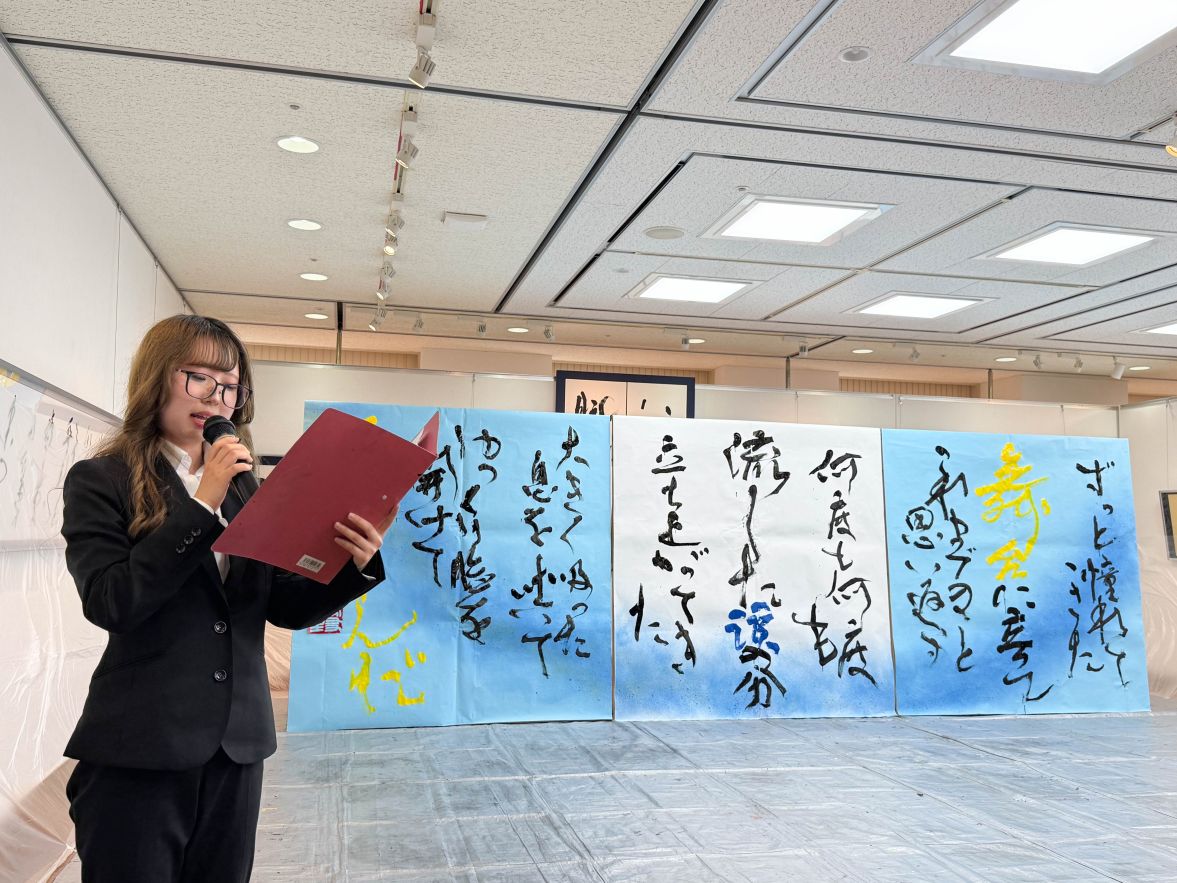 ずっと憧れて
きた
舞台に立って
これまでのこと
思い返す
何度も何度も
流した涙の分
立ち上がってきた
大きく吸った
息を吐いて
ゆっくり瞼を
開けて